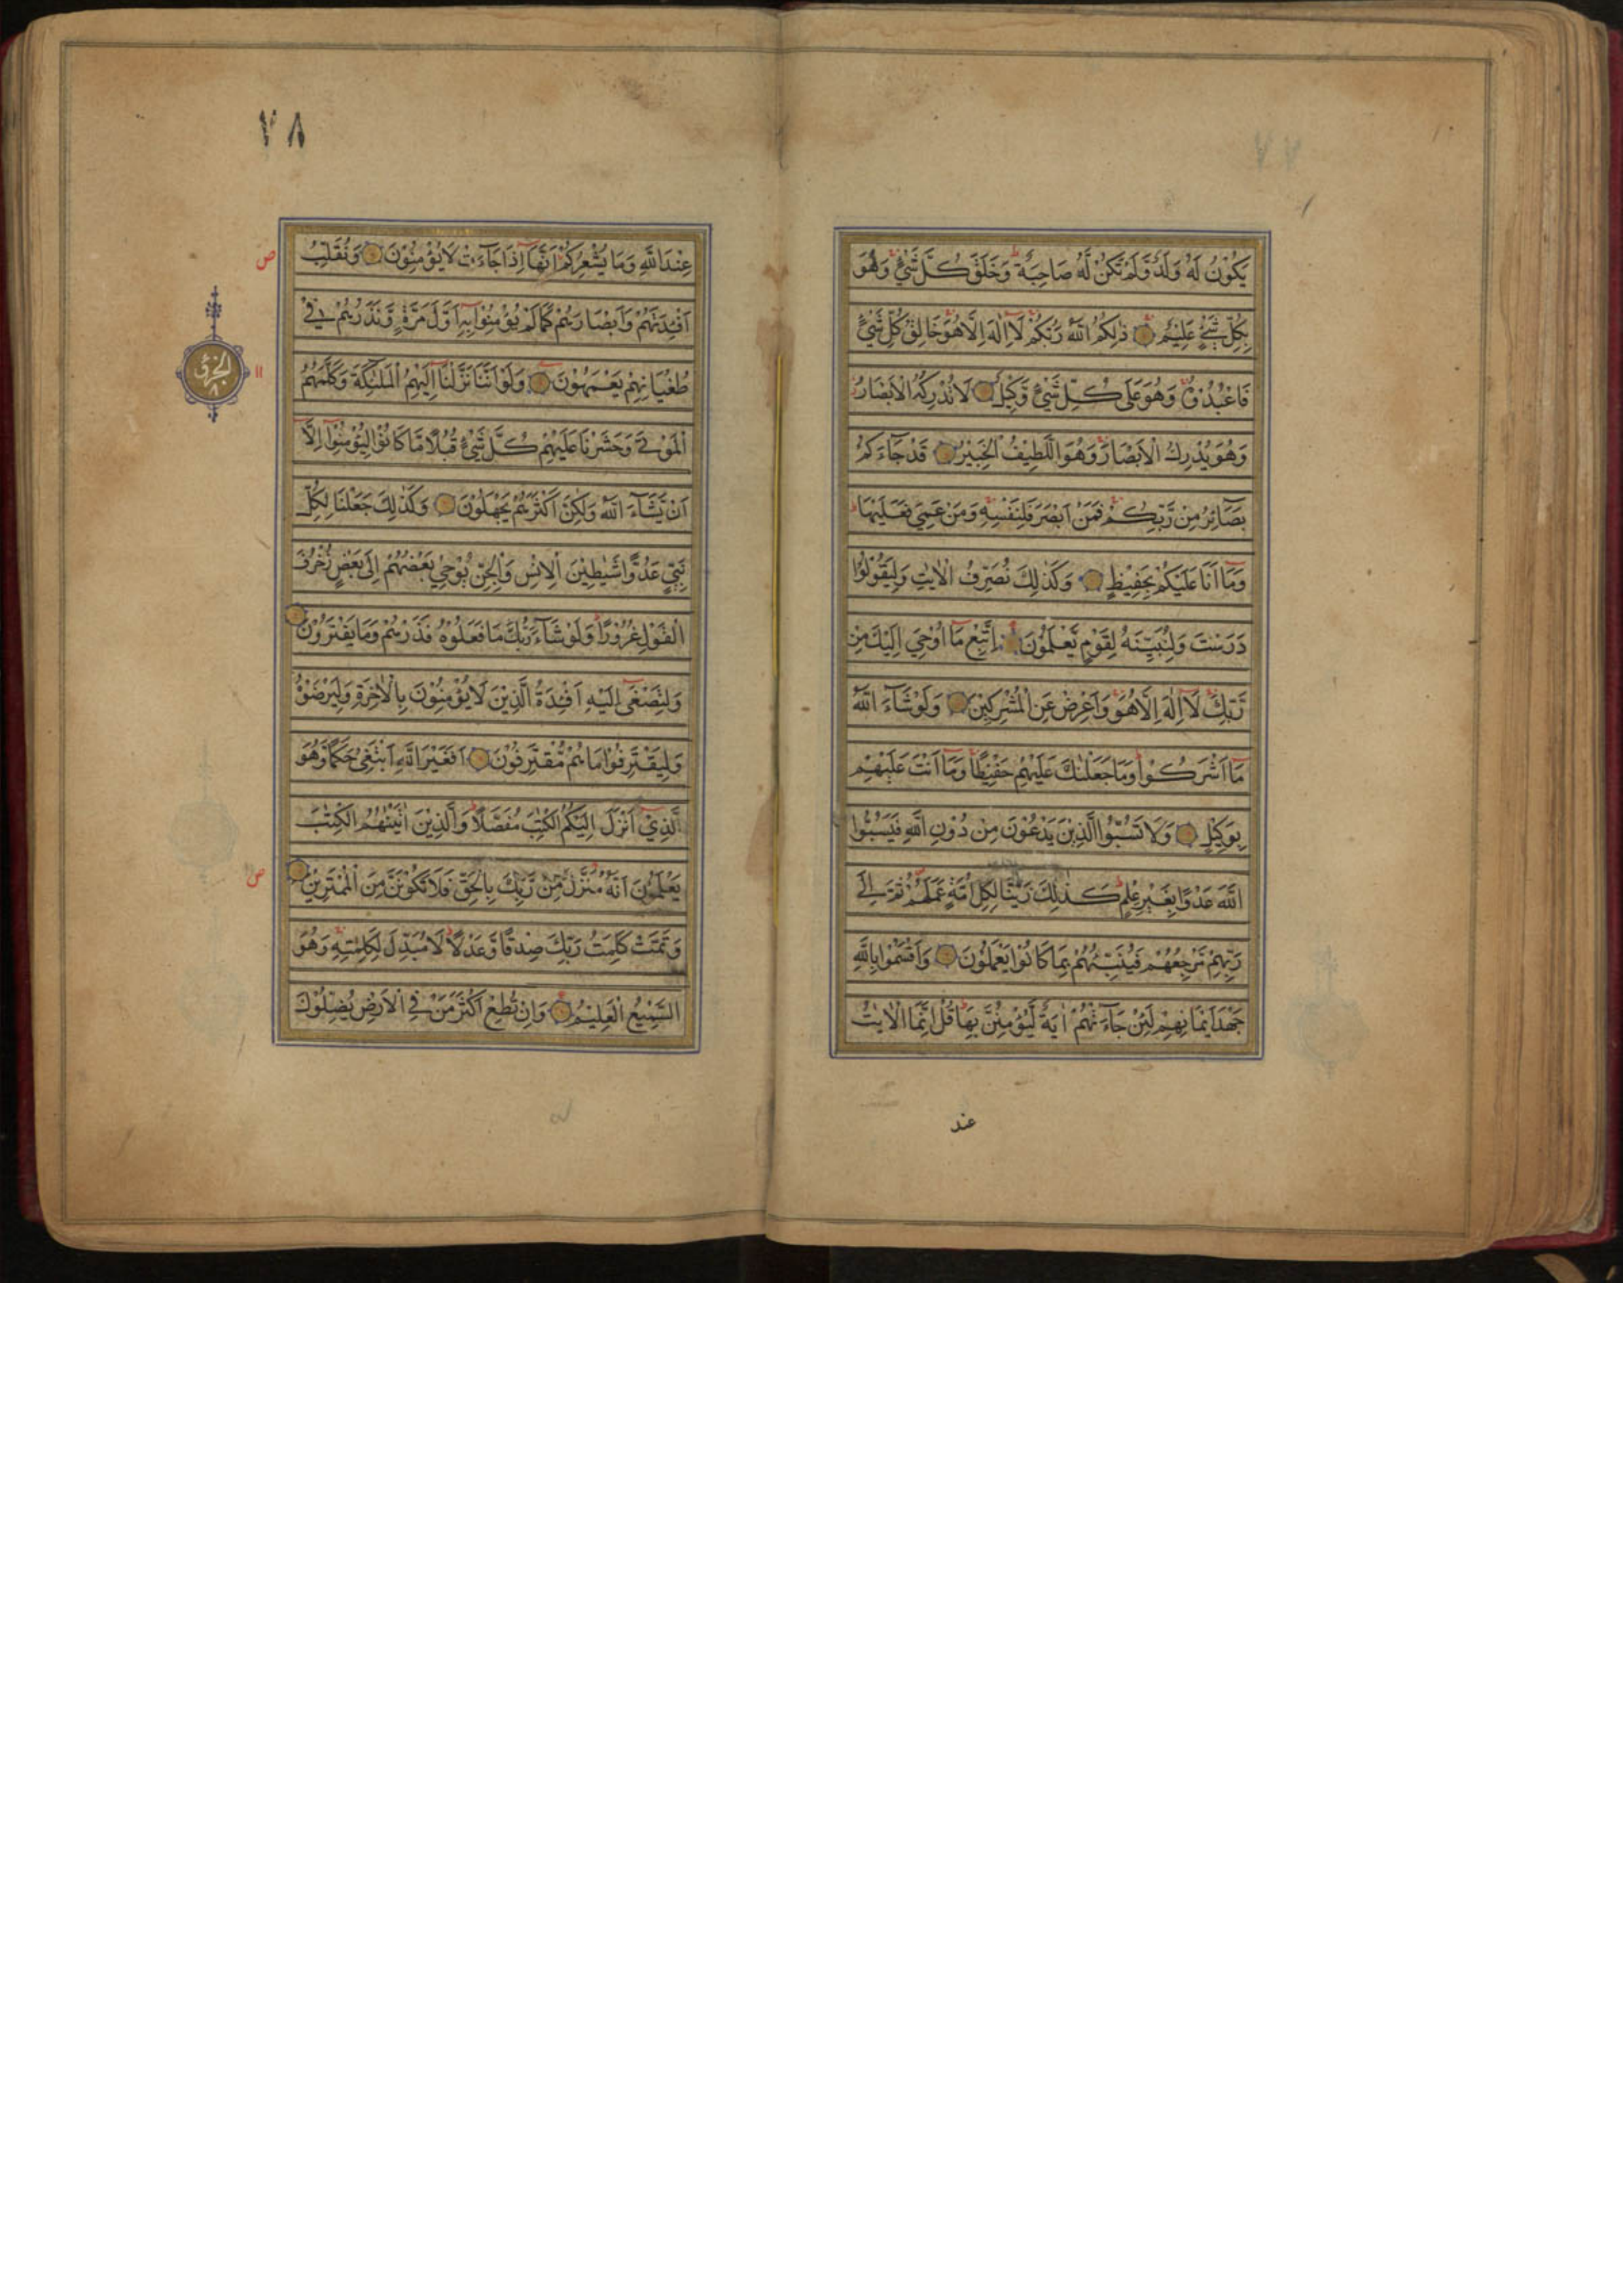 ٧٧
يَكُوْنُ لَهُ وَلَدٌ وَّلَمْ تَكُنْ لَّهُ صَاحِبَةٌ وَخَلَقَ كُلَّ شَيْءٍ وَهُوَ
بِكُلِّ شَيْءٍ عَلِيْمٌ ذٰلِكُمُ اللّٰهُ رَبُّكُمْ لَآ اِلٰهَ اِلَّا هُوَ خَالِقُ كُلِّ شَيْءٍ
فَاعْبُدُوْهُ وَهُوَ عَلٰى كُلِّ شَيْءٍ وَّكِيْلٌ لَا تُدْرِكُهُ الْاَبْصَارُ
وَهُوَ يُدْرِكُ الْاَبْصَارَ وَهُوَ اللَّطِيْفُ الْخَبِيْرُ قَدْ جَآءَكُمْ
بَصَآئِرُ مِنْ رَّبِّكُمْ فَمَنْ اَبْصَرَ فَلِنَفْسِهٖ وَمَنْ عَمِيَ فَعَلَيْهَا
وَمَآ اَنَا عَلَيْكُمْ بِحَفِيْظٍ وَكَذٰلِكَ نُصَرِّفُ الْاٰيٰتِ وَلِيَقُوْلُوْا
دَرَسْتَ وَلِنُبَيِّنَهُ لِقَوْمٍ يَّعْلَمُوْنَ اِتَّبِعْ مَآ اُوْحِيَ اِلَيْكَ مِنْ
رَّبِّكَ لَآ اِلٰهَ اِلَّا هُوَ وَاَعْرِضْ عَنِ الْمُشْرِكِيْنَ وَلَوْ شَآءَ اللّٰهُ
مَآ اَشْرَكُوْا وَمَا جَعَلْنٰكَ عَلَيْهِمْ حَفِيْظًا وَمَآ اَنْتَ عَلَيْهِمْ
بِوَكِيْلٍ وَلَا تَسُبُّوا الَّذِيْنَ يَدْعُوْنَ مِنْ دُوْنِ اللّٰهِ فَيَسُبُّوا
اللّٰهَ عَدْوًا بِغَيْرِ عِلْمٍ كَذٰلِكَ زَيَّنَّا لِكُلِّ اُمَّةٍ عَمَلَهُمْ ثُمَّ اِلٰى
رَبِّهِمْ مَّرْجِعُهُمْ فَيُنَبِّئُهُمْ بِمَا كَانُوْا يَعْمَلُوْنَ وَاَقْسَمُوْا بِاللّٰهِ
جَهْدَ اَيْمَانِهِمْ لَئِنْ جَآءَتْهُمْ اٰيَةٌ لَّيُؤْمِنُنَّ بِهَا قُلْ اِنَّمَا الْاٰيٰتُ
عند
٧٨
عِنْدَ اللّٰهِ وَمَا يُشْعِرُكُمْ اَنَّهَآ اِذَا جَآءَتْ لَا يُؤْمِنُوْنَ وَنُقَلِّبُ
ص
اَفْئِدَتَهُمْ وَاَبْصَارَهُمْ كَمَا لَمْ يُؤْمِنُوْا بِهٖٓ اَوَّلَ مَرَّةٍ وَّنَذَرُهُمْ فِيْ
طُغْيَانِهِمْ يَعْمَهُوْنَ وَلَوْ اَنَّنَا نَزَّلْنَآ اِلَيْهِمُ الْمَلٰٓئِكَةَ وَكَلَّمَهُمُ
الجزؤ
٨
الْمَوْتٰى وَحَشَرْنَا عَلَيْهِمْ كُلَّ شَيْءٍ قُبُلًا مَّا كَانُوْا لِيُؤْمِنُوْآ اِلَّآ
اَنْ يَّشَآءَ اللّٰهُ وَلٰكِنَّ اَكْثَرَهُمْ يَجْهَلُوْنَ وَكَذٰلِكَ جَعَلْنَا لِكُلِّ
نَبِيٍّ عَدُوًّا شَيٰطِيْنَ الْاِنْسِ وَالْجِنِّ يُوْحِيْ بَعْضُهُمْ اِلٰى بَعْضٍ زُخْرُفَ
الْقَوْلِ غُرُوْرًا وَلَوْ شَآءَ رَبُّكَ مَا فَعَلُوْهُ فَذَرْهُمْ وَمَا يَفْتَرُوْنَ
وَلِتَصْغٰٓى اِلَيْهِ اَفْئِدَةُ الَّذِيْنَ لَا يُؤْمِنُوْنَ بِالْاٰخِرَةِ وَلِيَرْضَوْهُ
وَلِيَقْتَرِفُوْا مَا هُمْ مُّقْتَرِفُوْنَ اَفَغَيْرَ اللّٰهِ اَبْتَغِيْ حَكَمًا وَّهُوَ
الَّذِيْٓ اَنْزَلَ اِلَيْكُمُ الْكِتٰبَ مُفَصَّلًا وَالَّذِيْنَ اٰتَيْنٰهُمُ الْكِتٰبَ
يَعْلَمُوْنَ اَنَّهُ مُنَزَّلٌ مِّنْ رَّبِّكَ بِالْحَقِّ فَلَا تَكُوْنَنَّ مِنَ الْمُمْتَرِيْنَ
ص
وَتَمَّتْ كَلِمَتُ رَبِّكَ صِدْقًا وَّعَدْلًا لَا مُبَدِّلَ لِكَلِمٰتِهٖ وَهُوَ
السَّمِيْعُ الْعَلِيْمُ وَاِنْ تُطِعْ اَكْثَرَ مَنْ فِي الْاَرْضِ يُضِلُّوْكَ